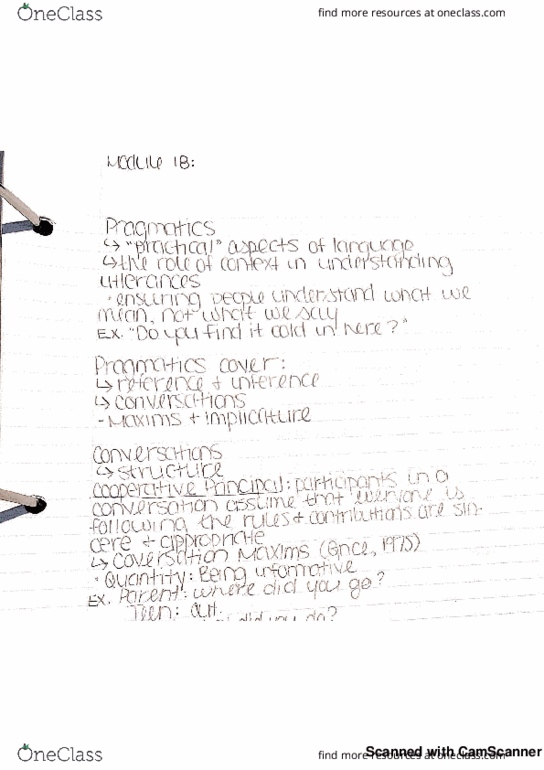 OneClass
find more resources at oneclass.com
Module 18:
Pragmatics
↳ "practical" aspects of language
↳ the role of context in understanding
utterances
· ensuring people understand what we
mean, not what we say
EX. "Do you find it cold in here?"
Pragmatics cover:
↳ reference + inference
↳ conversations
- Maxims + implicature
Conversations
↳ structure
cooperative Principal: participants in a
conversation assume that everyone is
following the rules + contributions are sin-
cere + appropriate
↳ Coversation Maxims (Grice, 1975)
· Quantity: Being informative
EX. Parent: where did you go?
Teen: out.
did you do?
OneClass
find more resources at oneclass.com
Scanned with CamScanner